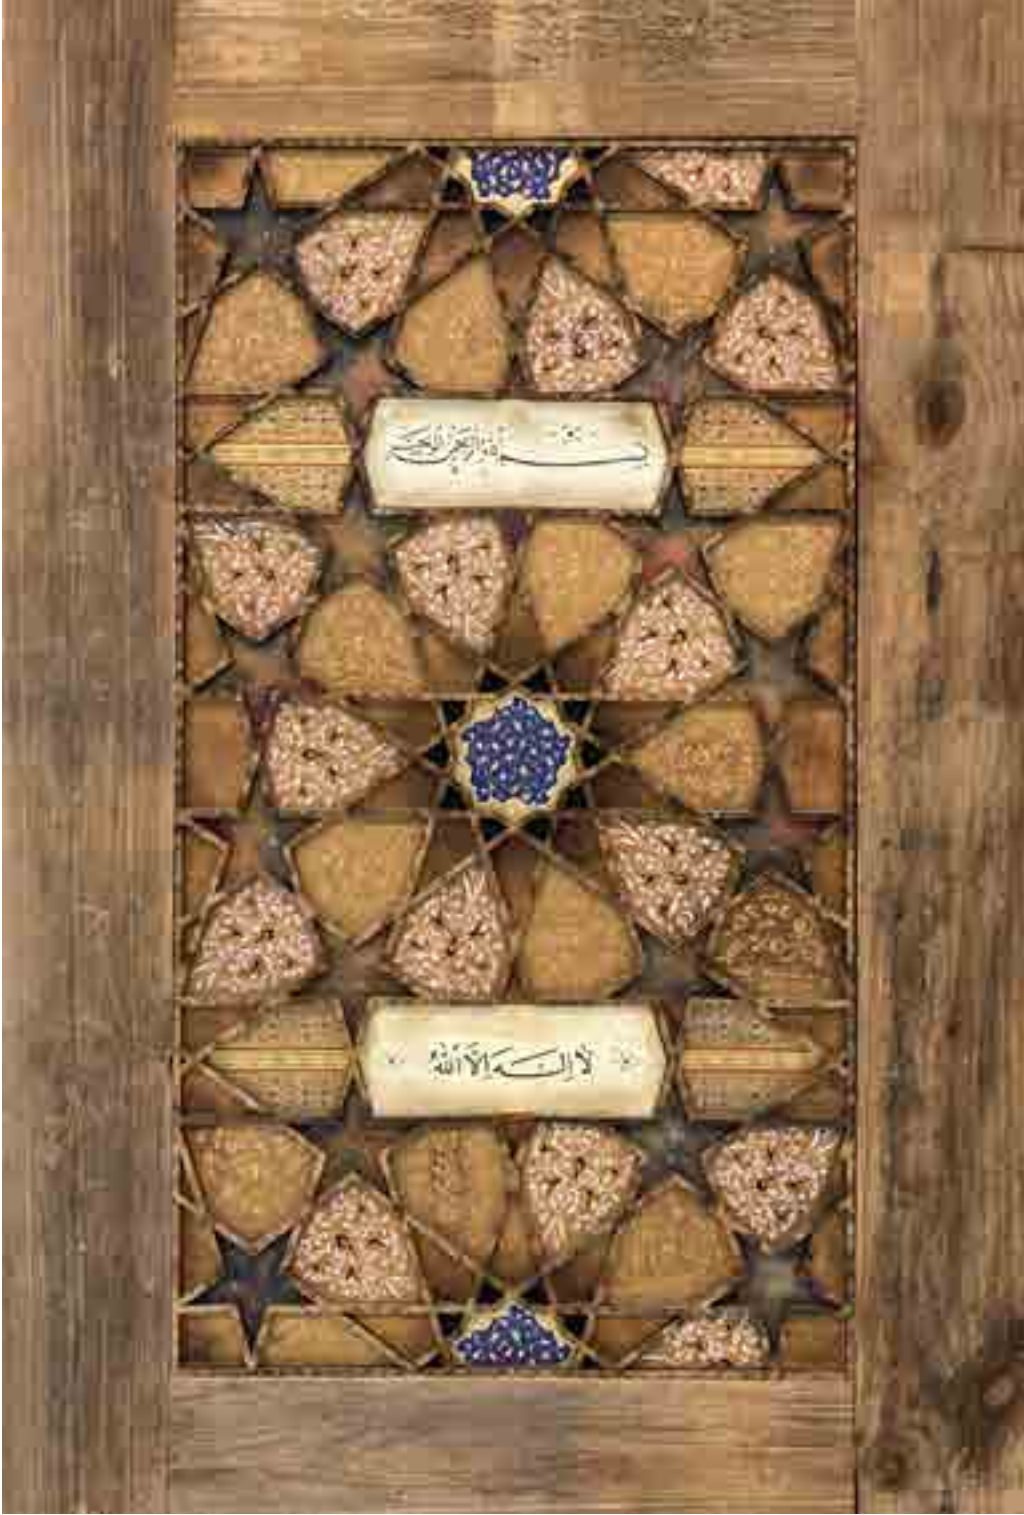 بسم الله الرحمن الرحيم
لَا إِلٰهَ إِلَّا اللّٰهُ